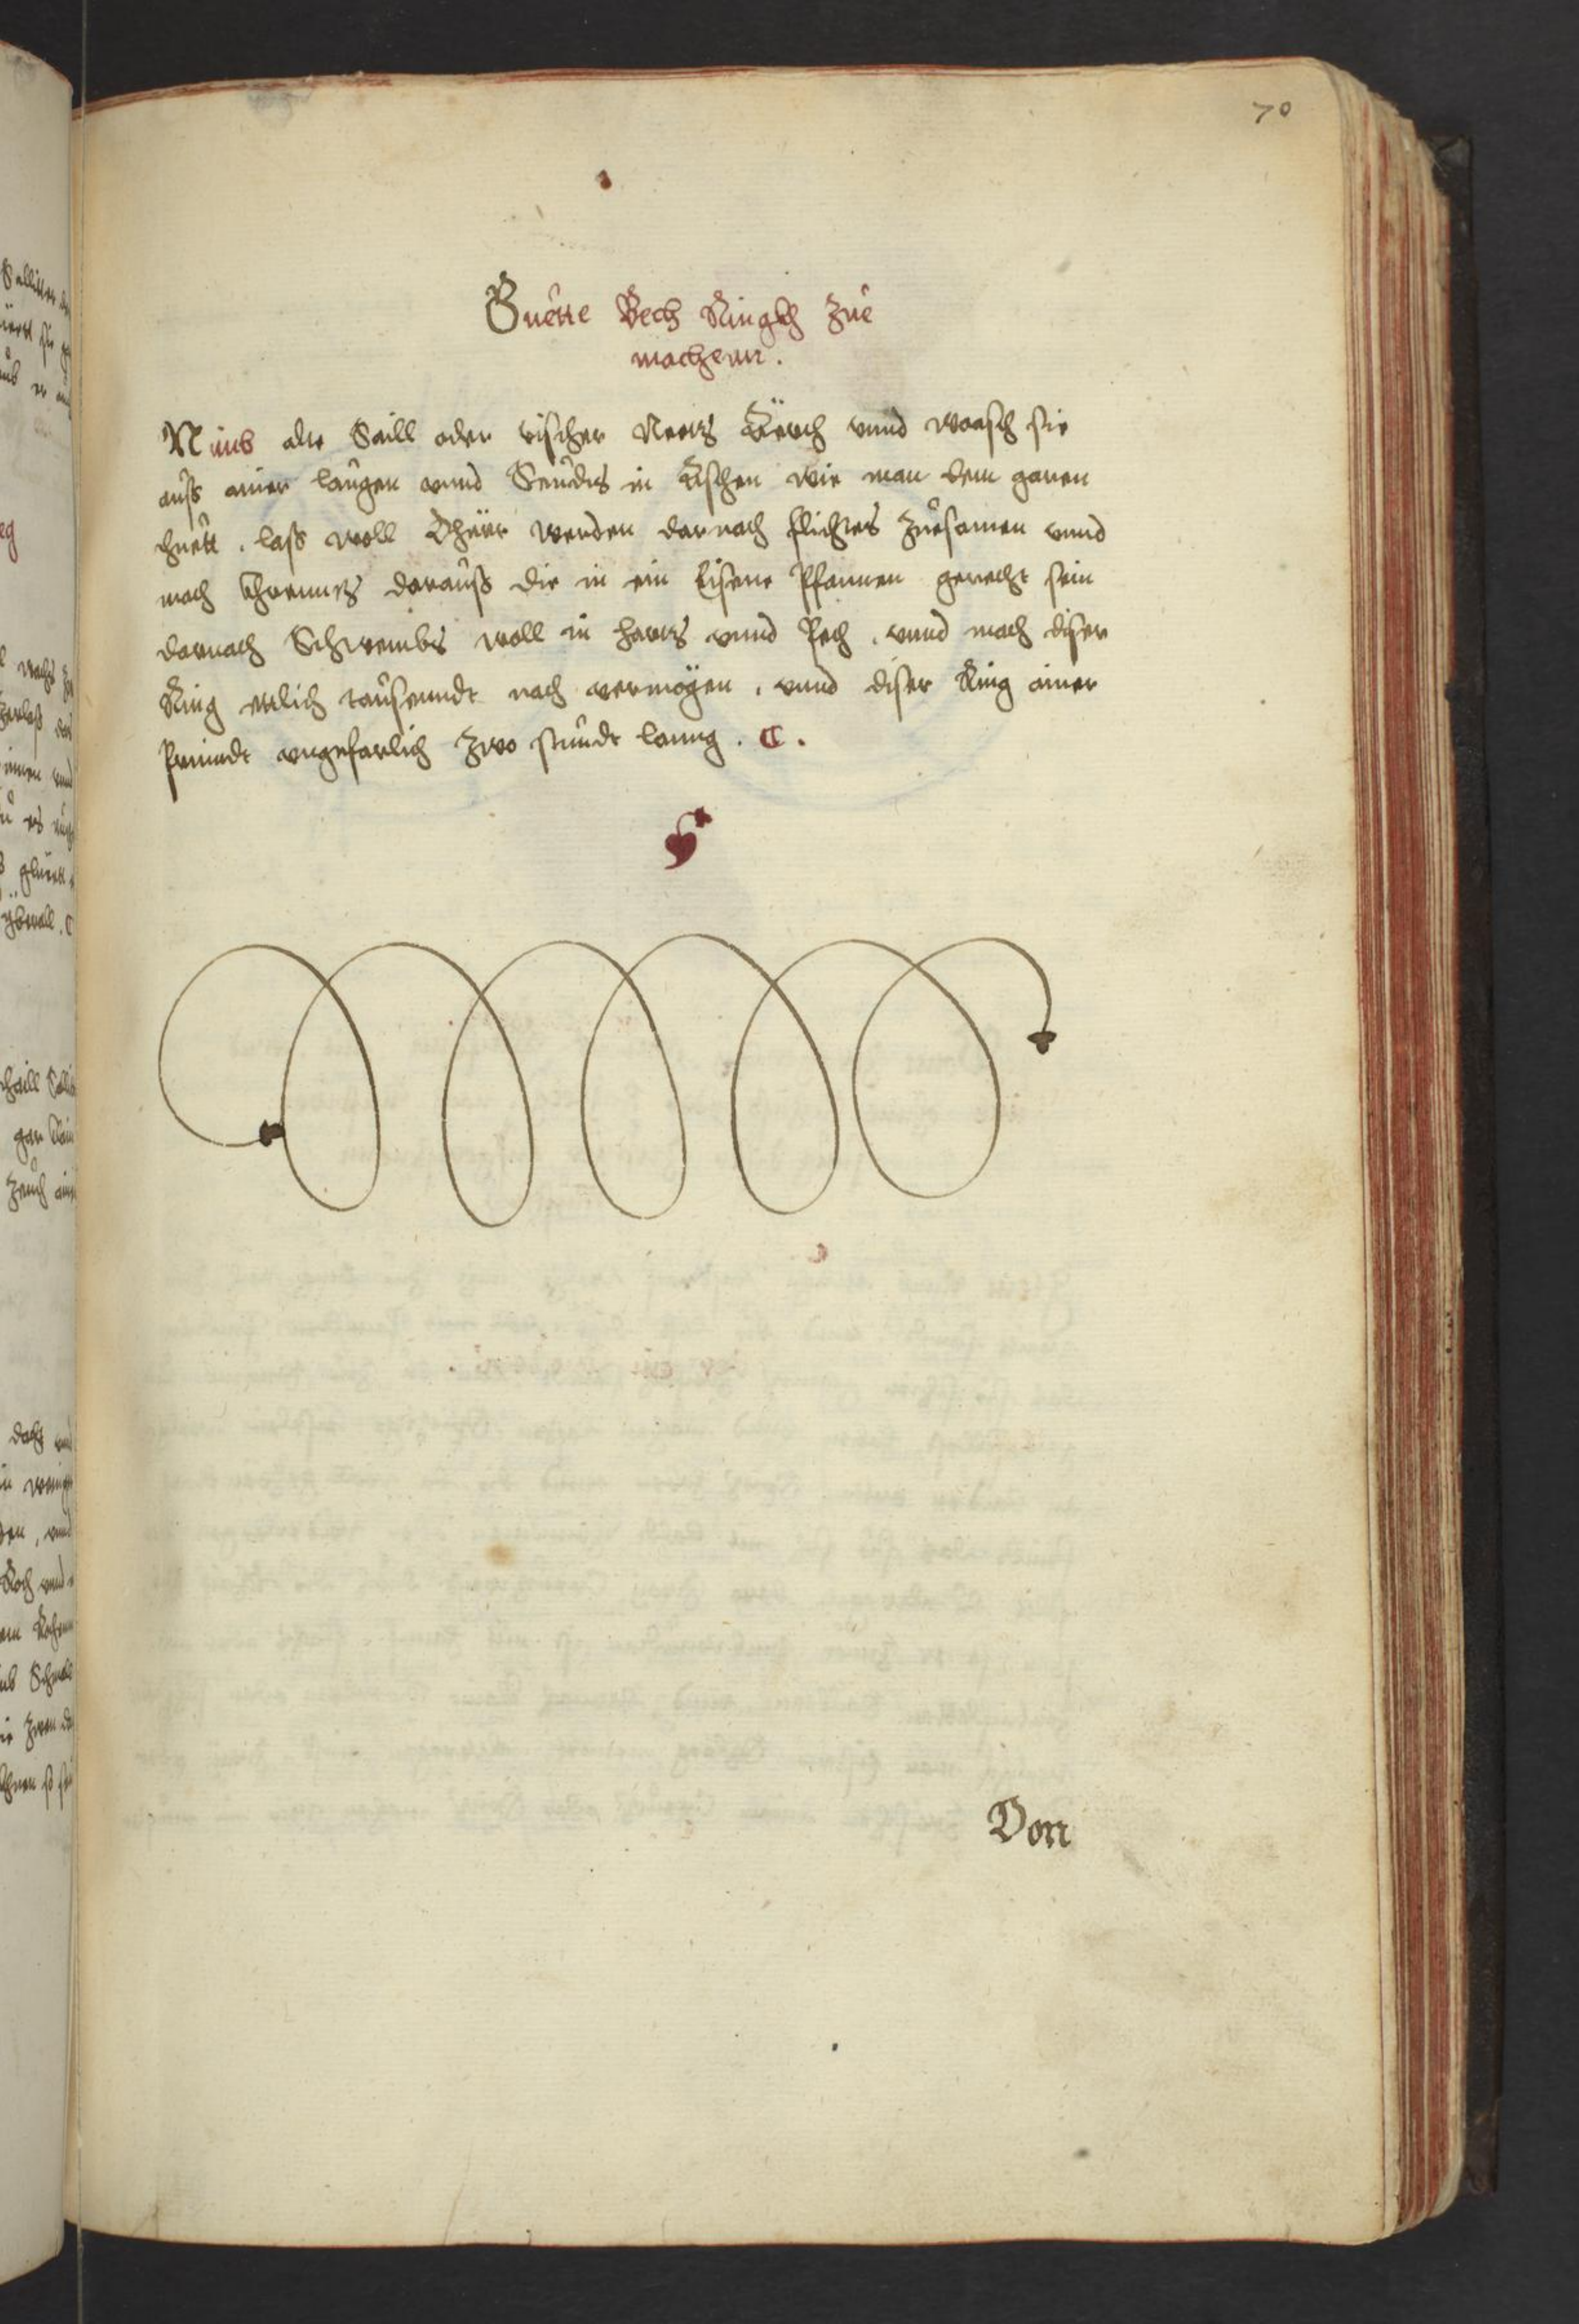 70
Guette Bech Ringkh Zue
machenn.
Nimb alte Saill oder vischer Neetz Zeüch vnnd waasch sie
auß ainer laugen vnnd Seudts in Aschen wie man dem garen
thuett. laß woll Thürr werden darnach flichtes zuesamen vnnd
mach Khrenntz darauß die in ein Eisene Pfannen gerecht sein
darnach Schwembts woll in hartz vnnd Pech. vnnd mach diser
Ring ettlich tausenndt nach vermögen. vnnd diser Ring ainer
Prinndt vngefarlich zwo stundt lanng. C.
Von